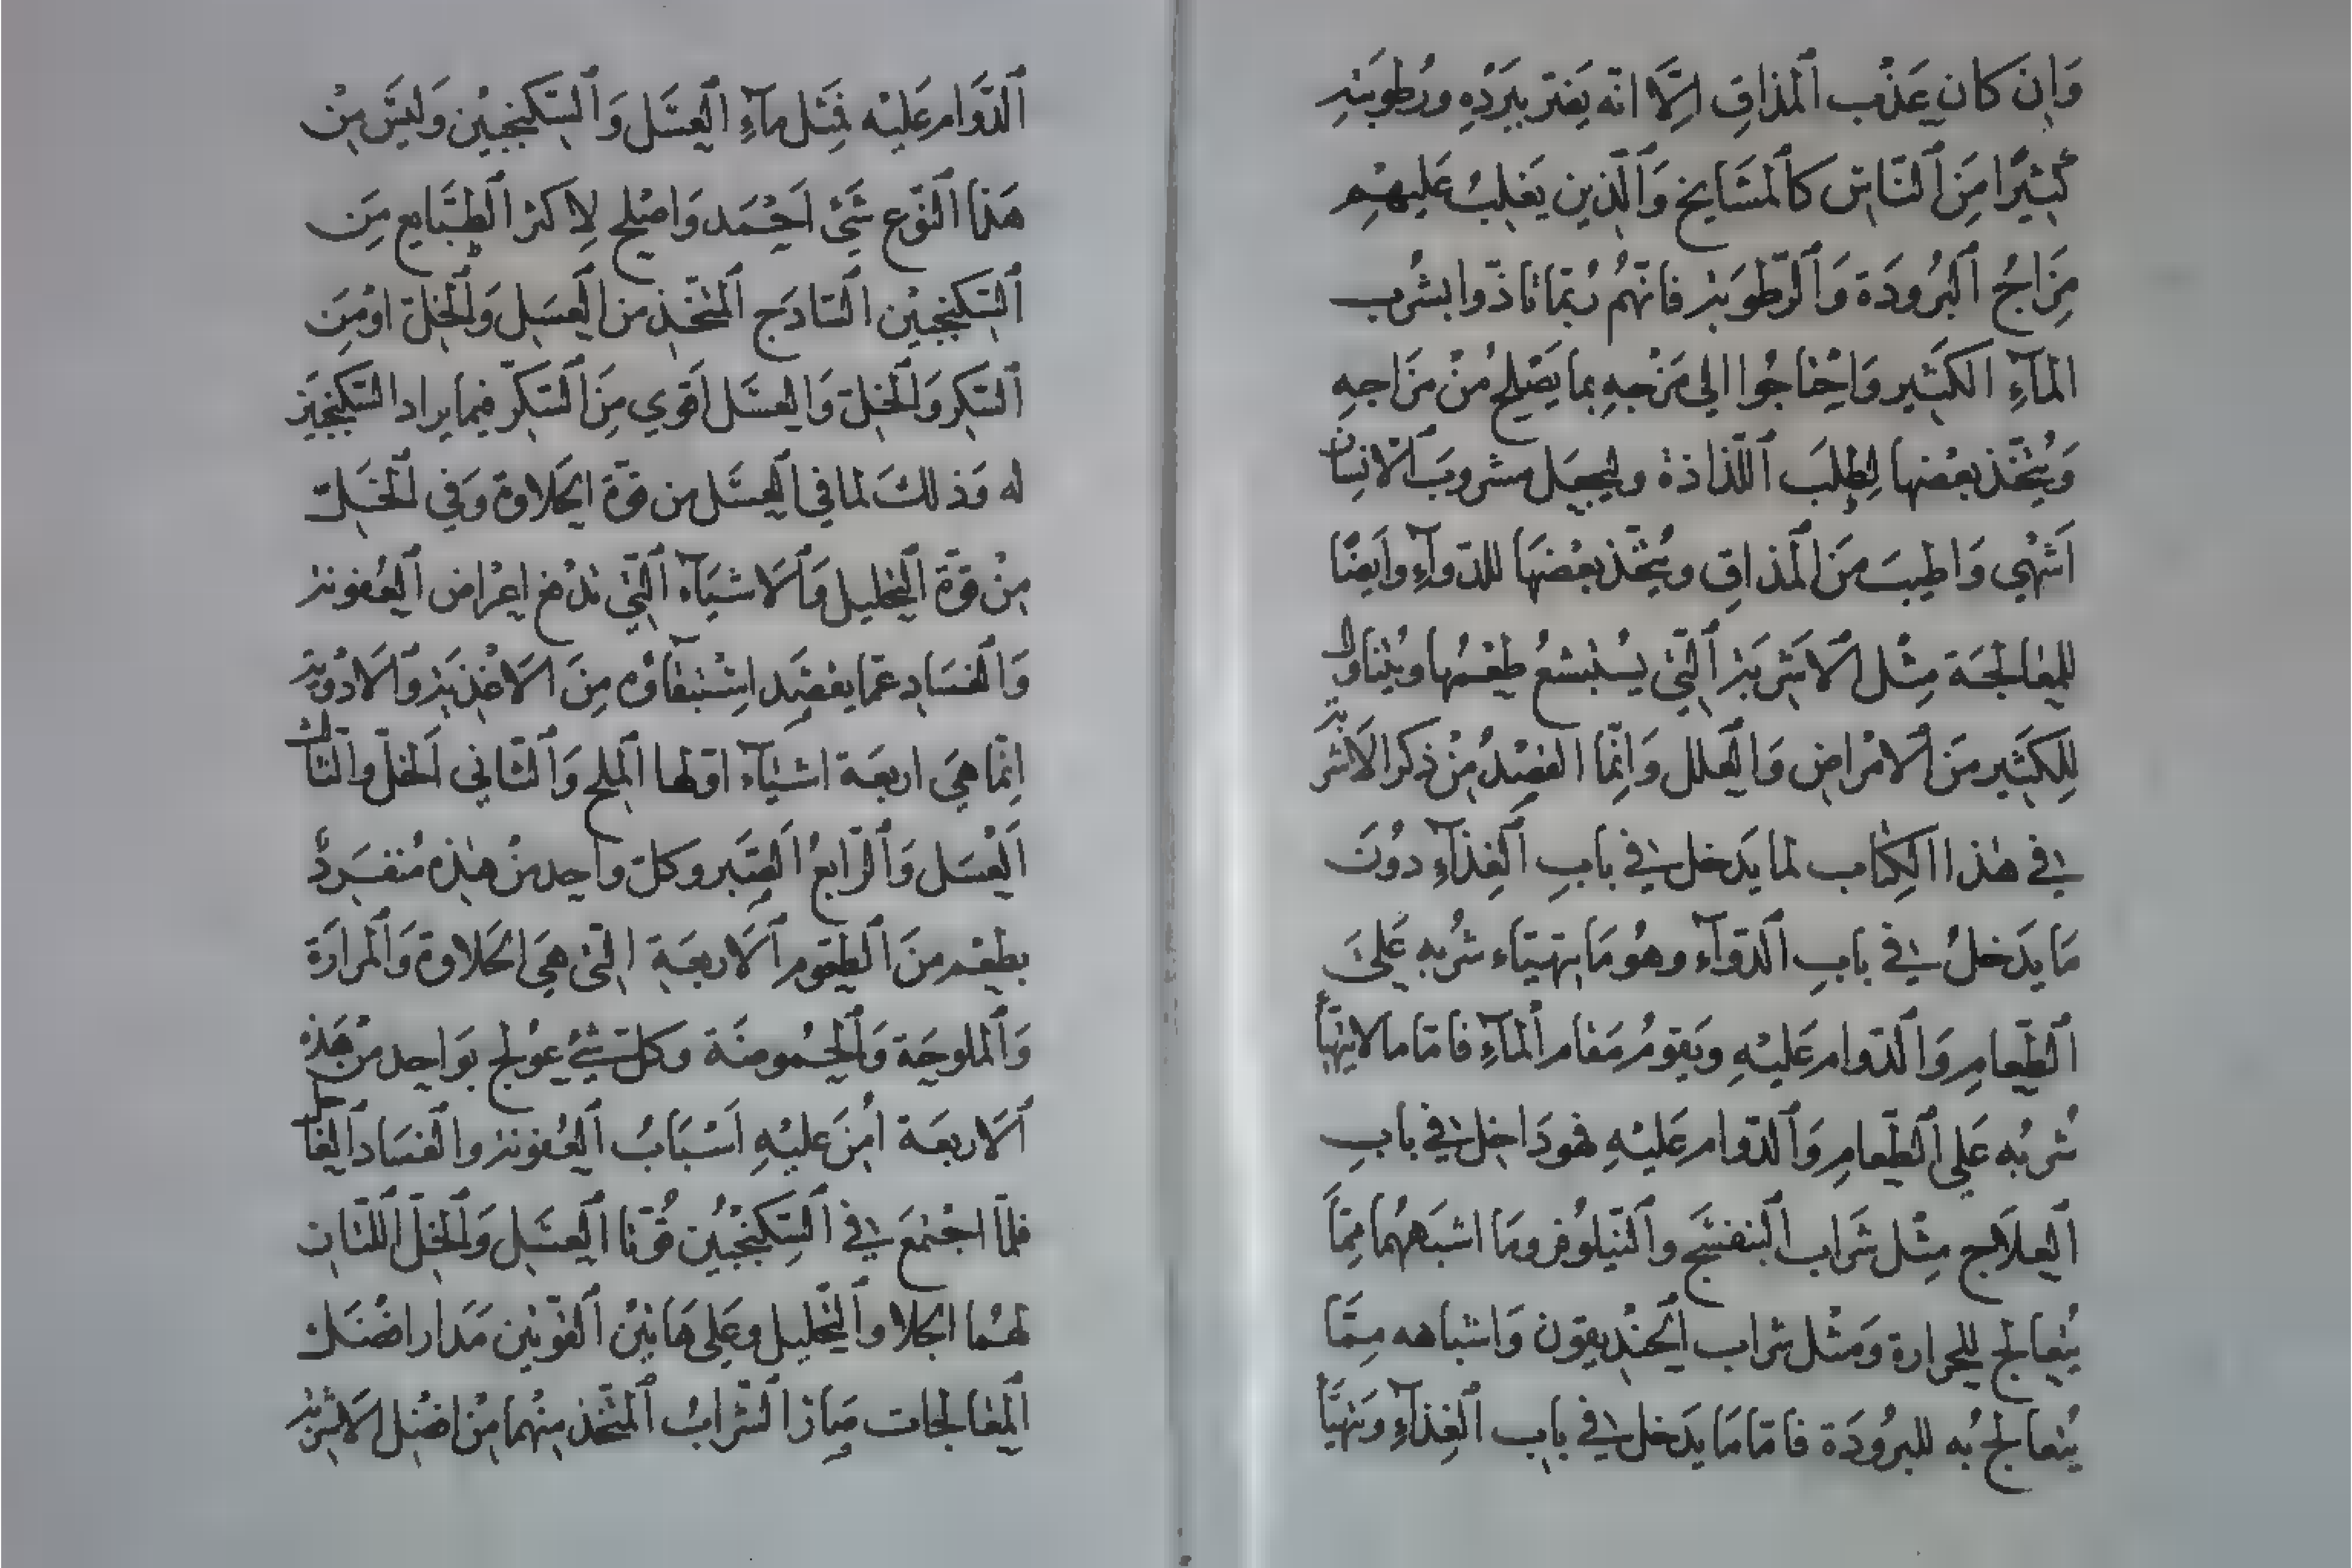 وَاِنَ كان عَذْب اَلمذاقِ اِلَّا انّه يَضرّ ببَردْهِ ورُطوبَتهِ
كَثيرًا مِنَ اَلنَّاسِ كاَلمشَايخ وَاَلّذين يَغلِبُ عَليهِم
مِزَاجُ اَلبُرودَة وَاَلرّطوبَة فانّهُم رُبّما تاذّوا بشُرب
المآءِ الكَثير وَاحْتاجُوا الي مَزْجهِ بما يَصْلح مُنْ مزَاجهِ
وَيُتخّذ بَعْضها لِطلبَ اَللّذاذة وليجعَل مشروبَ اَلانسَان
اَشْهي وَاطيبَ مَن اَلمذاقِ ويُتخّذ بعْضهَا للدّوآءِ وايَضًا
للمعَالجَة مِثل اَلاَشربَة اَلّتي يسُتبشعُ طعْمُها ويُتناول
لِلكثَير مَن اَلامْراضِ وَاَلعلل وَانّما القصْدُ مِنْ ذكر الاَشربة
في هٰذا اَلكِتاب لما يَدخل في بابِ اَلغِذآءِ دوُنَ
مَا يَدخلُ في بابِ اَلدّوآء وهوُ مَا يتهيّاء شُربه عَلىَ
اَلطّعامِ وَاَلدّوام عَليْهِ ويَقومُ مَقام اَلمآءِ فامّا ما لا يتهيّأ
شُربُه عَلى اَلطّعامِ وَاَلدّوام عَليْهِ فهو دَاخل في بابِ
اَلعلَاج مِثْل شَراب اَلبنفسَج واَلنّيلوُفر ومَا اشبَههُما ممّا
يُتعالج للحرارة وَمثْل شراب اَلحنْديقون وَاشباهه مِمّا
يُتعالج بُه للبروُدَة فامّا مَا يَدخل في باب اَلغِذآءِ وَيتهيّأ
اَلدّوَام عَليْه فمَثِل مآءِ اَلعسَل وَاَلسّكنجبيْن وَليسَ مِنْ
هَذا اَلنّوع شَئ اَحْمَد وَاصْلح لِاكثر اَلطبَّايع مِنَ
اَلسّكنجبيْن اَلسّادَج اَلمتّخذ من اَلعسَل وَاَلخلّ اوْ مِنَ
اَلسّكر وَاَلخلّ وَاَلعسَل اَقوي مِنَ اَلسّكّر فيما يراد السّكنجبين
له وَذلكَ لما في اَلعسَل من قوّة اَلحَلاوة وَفي اَلخَلّ
مِنْ قوّة اَلتحليل وَاَلاَشيَآء اَلّتي تدْفع اعْراض اَلعُفونة
وَاَلفسَادِ عمّا يقصَد اسِتْبقآؤه مِنَ اَلاَغذيَة وَاَلاَدْويَة
اِنّما هيَ اربعَة اشيآء اوّلها اَلملح وَاَلثّاني اَلخلّ واَلثّالث
اَلعْسَل وَاَلرّابعُ اَلصّبَر وكلّ واحِد منْ هٰذه مُنفَردٌ
بطعْم منَ اَلطّعوم اَلاَربعَة اَلّتي هيَ اَلحَلاوة وَاَلمرارَة
وَاَلملوحَة وَاَلحُموضَة وكلّ شَيْءٍ عوُلج بوَاحِد مِنْ هَذه
اَلاَربعَة اُمنَ عَليْهِ اَسْبَابُ اَلعُفونة واَلفسَاد اَلغالبـ
فلمّا اجْتمَعَ في اَلسّكنجُبُين قوُّتا اَلعسَل وَاَلخلّ اَللّتان
لهمُا اَلجلا واَلتحْليل وعَلى هَاتيْن اَلقوّتين مَدَار افْضَلـ
اَلمعَالجات صَار اَلشّرابُ اَلمتّخذ منْهما مِنْ افضْل اَلاَشربْة